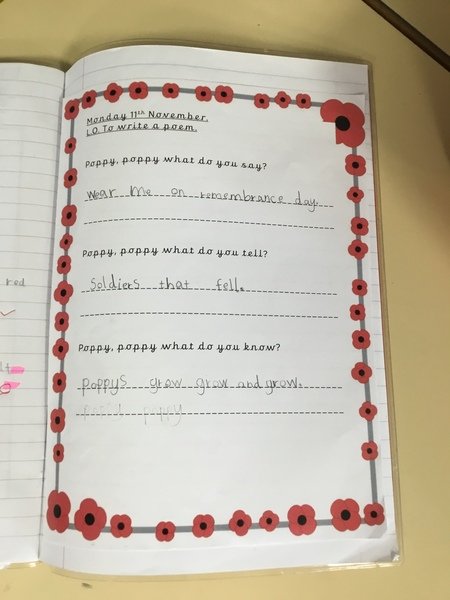 Monday 11th November.
L.O. To write a poem.
Poppy, poppy what do you say?
Wear me on remembrance day.
Poppy, poppy what do you tell?
Soldiers that fell.
Poppy, poppy what do you know?
red
poppys grow grow and grow.
poppy